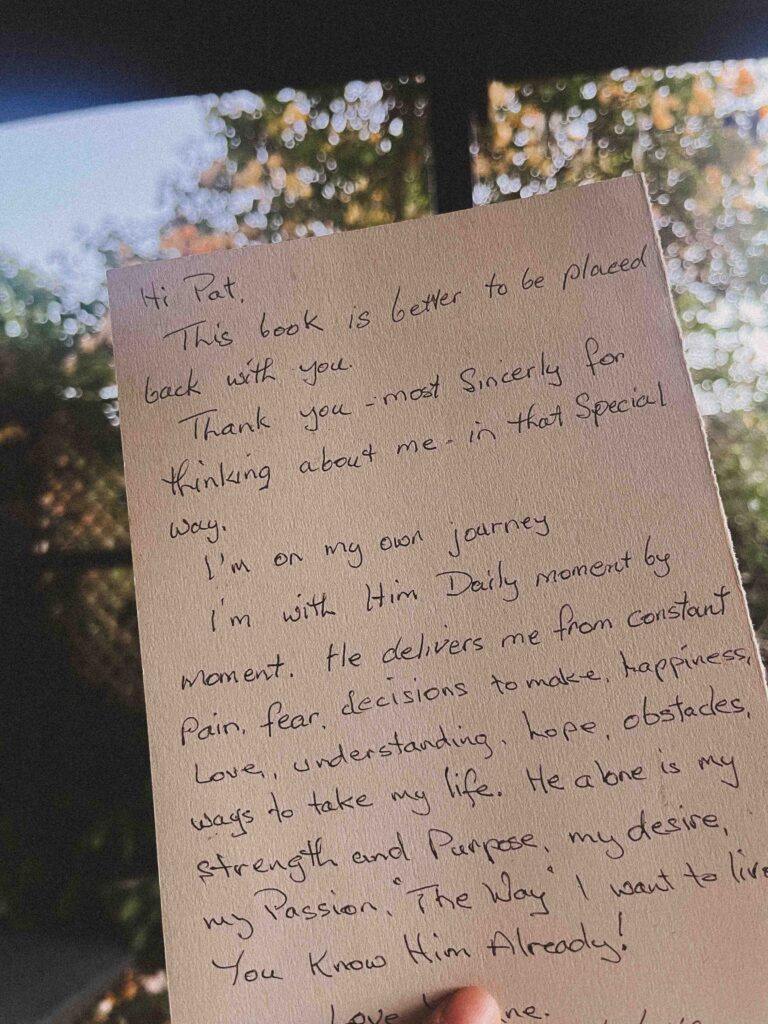 Hi Pat.
This book is better to be placed
back with you.
Thank you - most Sincerly for
thinking about me - in that Special
way.
I'm on my own journey
I'm with Him Daily moment by
moment. He delivers me from constant
Pain, fear, decisions to make, happiness,
Love, understanding, hope, obstacles,
ways to take my life. He alone is my
strength and Purpose, my desire,
my Passion, "The Way" I want to live
You Know Him Already!
Love